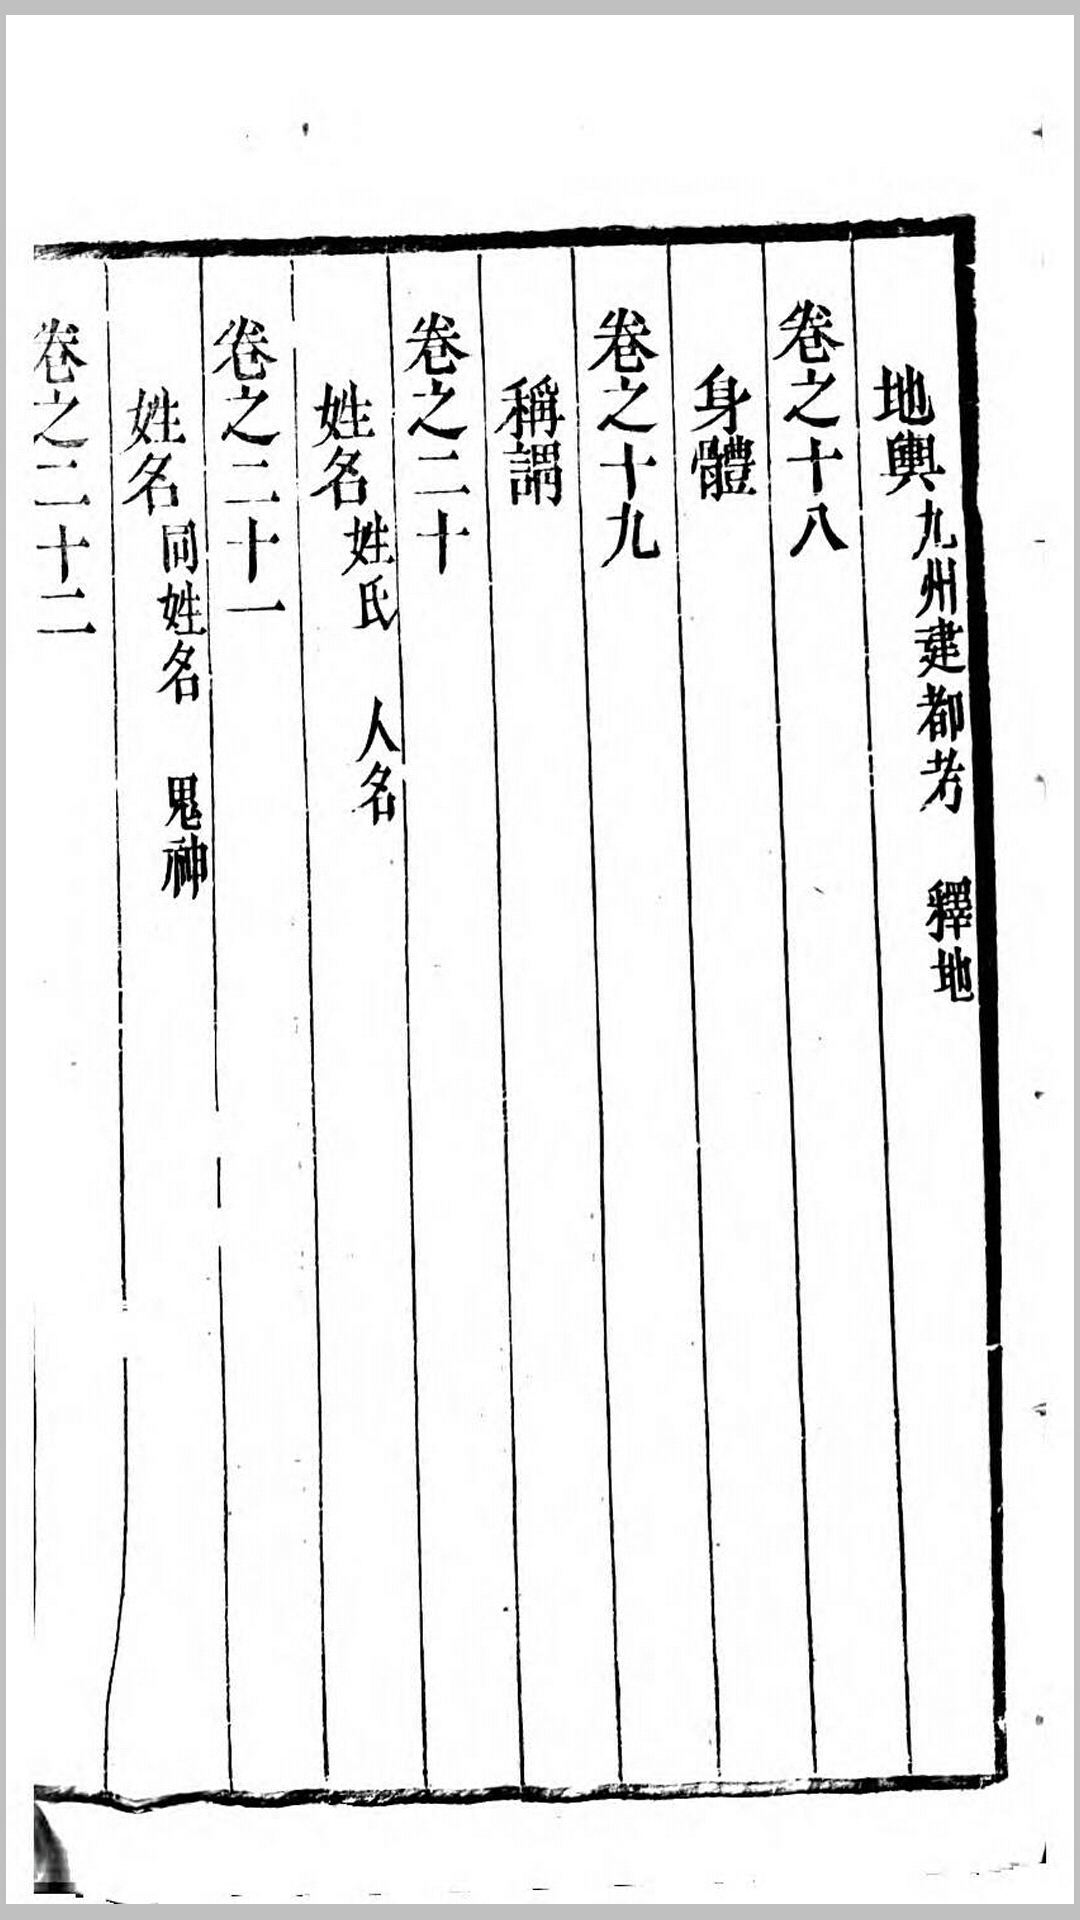 地輿九州建都考 釋地
卷之十八
身體
卷之十九
稱謂
卷之二十
姓名姓氏 人名
卷之二十一
姓名同姓名 鬼神
卷之二十二